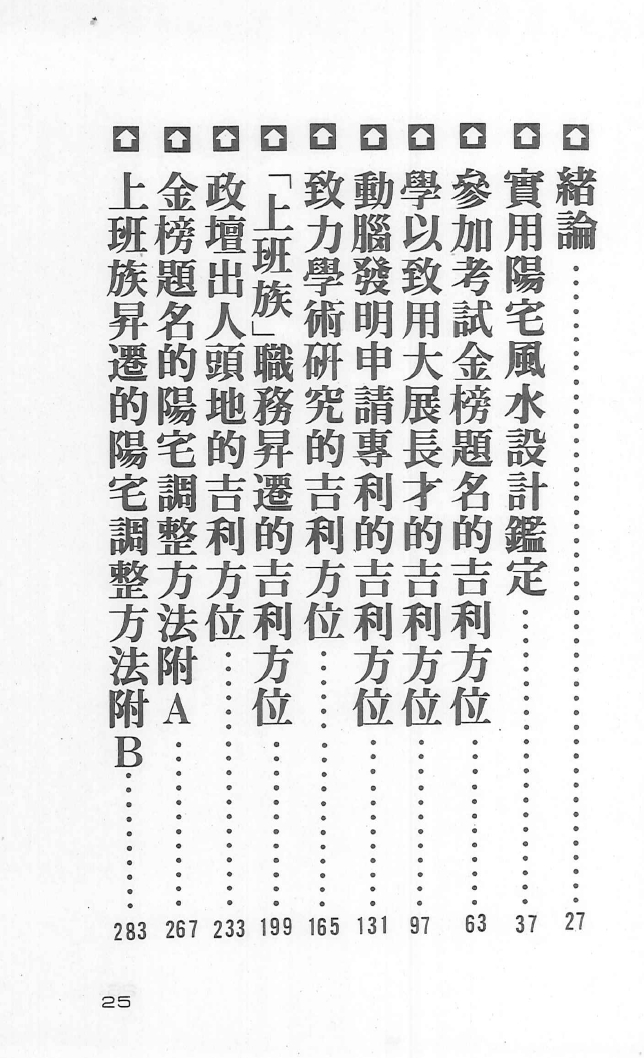 緒論……27
實用陽宅風水設計鑑定……37
參加考試金榜題名的吉利方位……63
學以致用大展長才的吉利方位……97
動腦發明申請專利的吉利方位……131
致力學術研究的吉利方位……165
「上班族」職務昇遷的吉利方位……199
政壇出人頭地的吉利方位……233
金榜題名的陽宅調整方法附A……267
上班族昇遷的陽宅調整方法附B……283
25